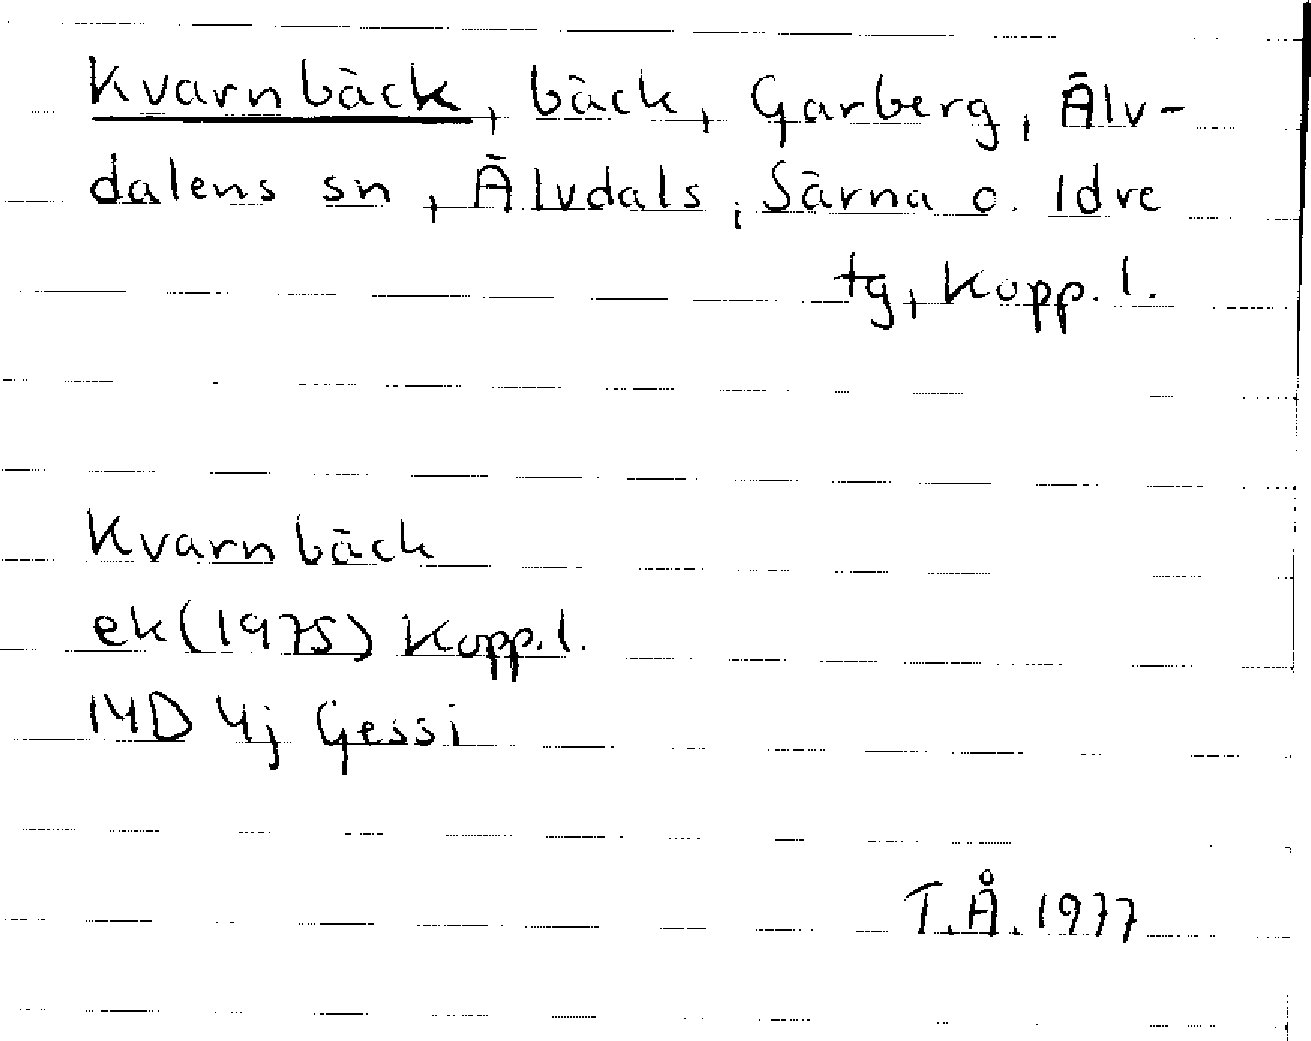 Kvarnbäck, bäck, Garberg, Älv-
dalens sn, Älvdals, Särna o. Idre
tg, Kopp. l.
Kvarnbäck
ek (1975) Kopp. l.
14D 4j Gessi
T.Å. 1977